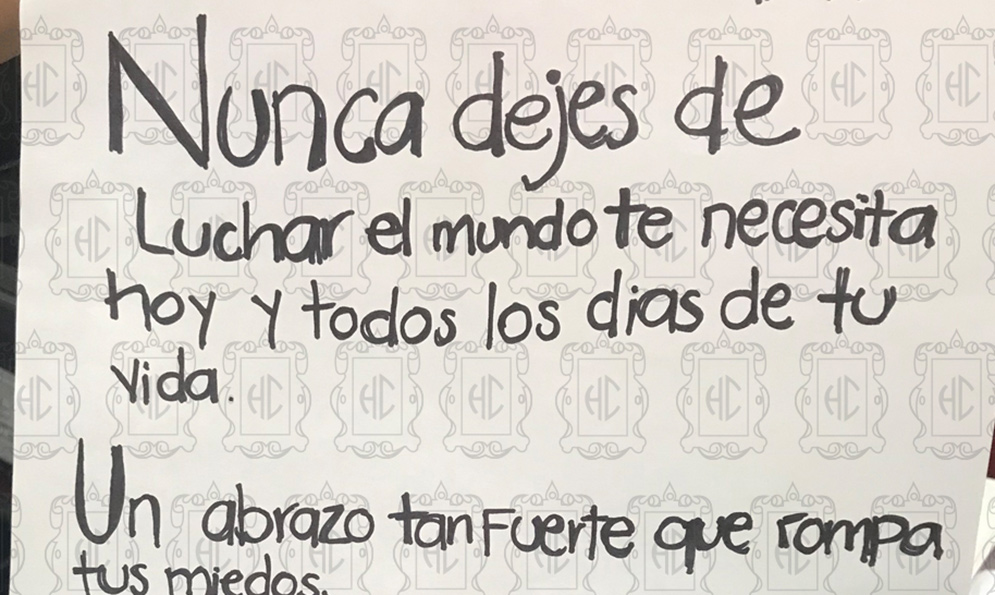 Nunca dejes de
Luchar el mundo te necesita
hoy y todos los dias de tu
vida.
Un abrazo tan Fuerte que rompa
tus miedos.